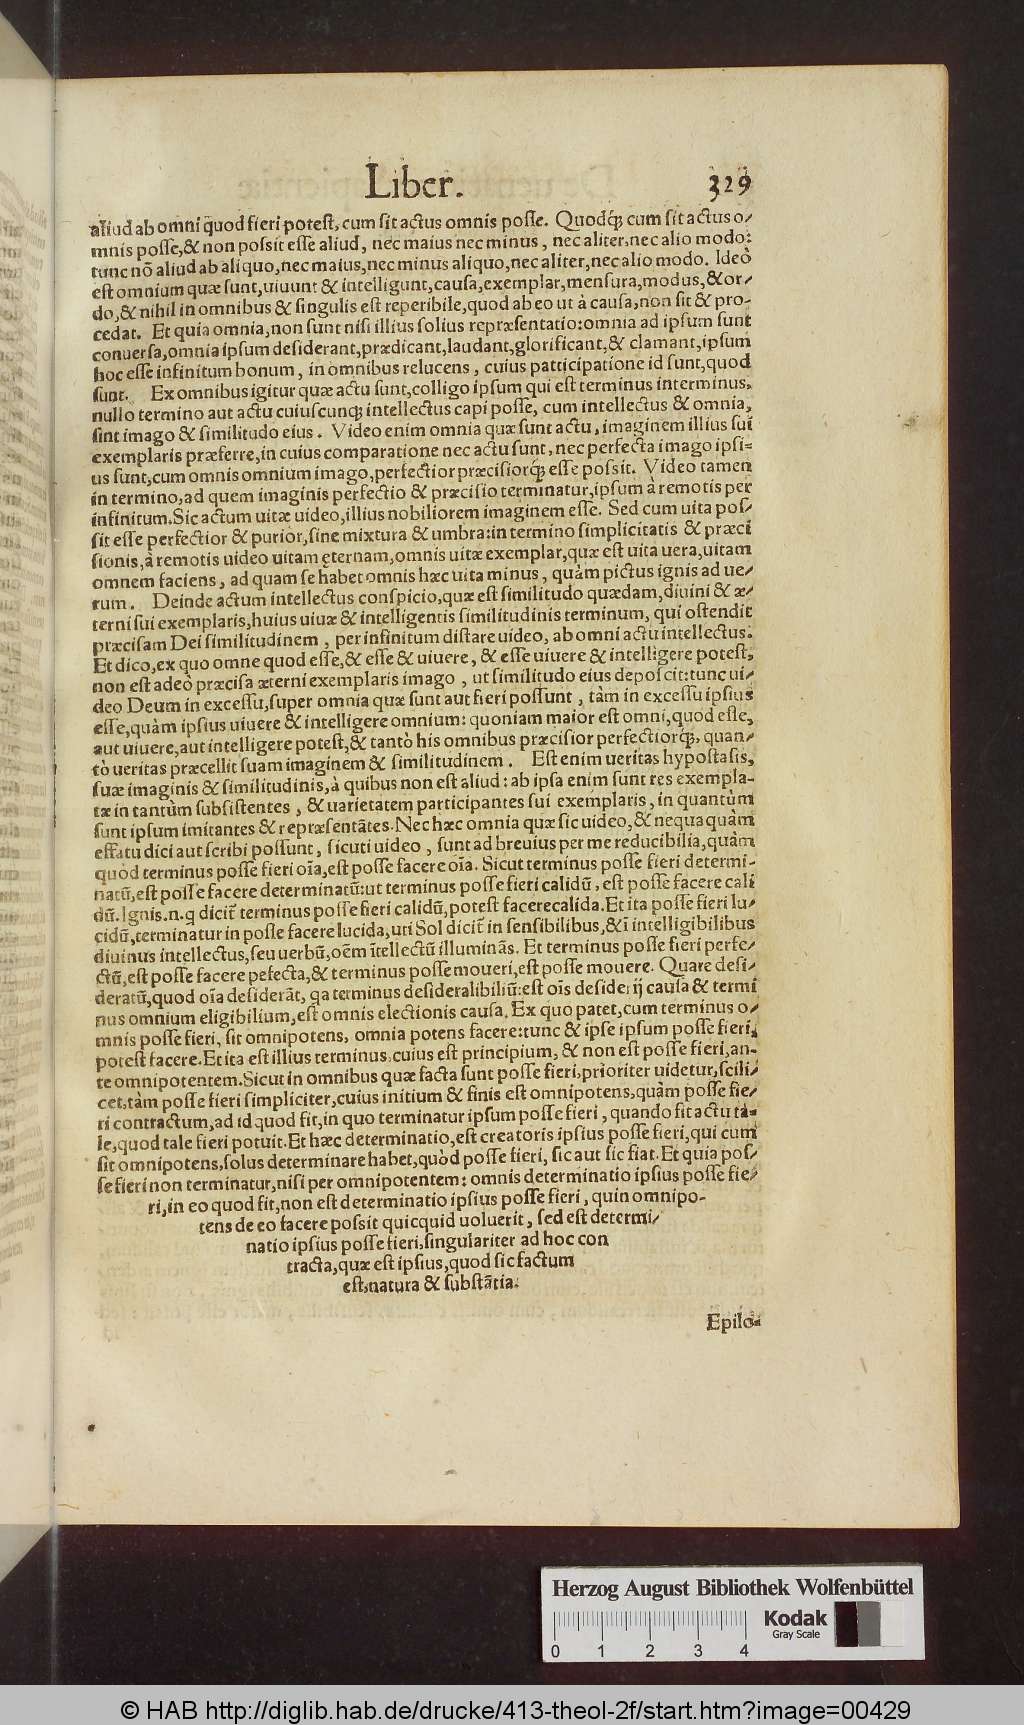 Liber. 329
aliud ab omni quod fieri potest, cum sit actus omnis posse. Quodq́; cum sit actus o/
mnis posse, & non possit esse aliud, nec maius nec minus, nec aliter, nec alio modo:
tunc nō aliud ab aliquo, nec maius, nec minus aliquo, nec aliter, nec alio modo. Ideò
est omnium quæ sunt, uiuunt & intelligunt, causa, exemplar, mensura, modus, & or/
do, & nihil in omnibus & singulis est reperibile, quod ab eo ut à causa, non sit & pro-
cedat. Et quia omnia, non sunt nisi illius solius repræsentatio: omnia ad ipsum sunt
conuersa, omnia ipsum desiderant, prædicant, laudant, glorificant, & clamant, ipsum
hoc esse infinitum bonum, in omnibus relucens, cuius patticipatione id sunt, quod
sunt. Ex omnibus igitur quæ actu sunt, colligo ipsum qui est terminus interminus,
nullo termino aut actu cuiuscunq; intellectus capi posse, cum intellectus & omnia,
sint imago & similitudo eius. Video enim omnia quæ sunt actu, imaginem illius sui
exemplaris præferre, in cuius comparatione nec actu sunt, nec perfecta imago ipsi=
us sunt, cum omnis omnium imago, perfectior præcisiorq́; esse possit. Video tamen
in termino, ad quem imaginis perfectio & præcisio terminatur, ipsum à remotis per
infinitum. Sic actum uitæ uideo, illius nobiliorem imaginem esse. Sed cum uita pos/
sit esse perfectior & purior, sine mixtura & umbra: in termino simplicitatis & præci
sionis, à remotis uideo uitam ęternam, omnis uitæ exemplar, quæ est uita uera, uitam
omnem faciens, ad quam se habet omnis hæc uita minus, quàm pictus ignis ad ue/
rum. Deinde actum intellectus conspicio, quæ est similitudo quædam, diuini & æ/
terni sui exemplaris, huius uiuæ & intelligentis similitudinis terminum, qui ostendit
præcisam Dei similitudinem, per infinitum distare uideo, ab omni actu intellectus.
Et dico, ex quo omne quod esse, & esse & uiuere, & esse uiuere & intelligere potest,
non est adeò præcisa æterni exemplaris imago, ut similitudo eius deposcit: tunc ui/
deo Deum in excessu, super omnia quæ sunt aut fieri possunt, tàm in excessu ipsius
esse, quàm ipsius uiuere & intelligere omnium: quoniam maior est omni, quod esse,
aut uiuere, aut intelligere potest, & tantò his omnibus præcisior perfectiorq́;, quan/
tò ueritas præcellit suam imaginem & similitudinem. Est enim ueritas hypostasis,
suæ imaginis & similitudinis, à quibus non est aliud: ab ipsa enim sunt res exempla-
tæ in tantùm subsistentes, & uarietatem participantes sui exemplaris, in quantùm
sunt ipsum imitantes & repræsentātes. Nec hæc omnia quæ sic uideo, & nequaquàm
effatu dici aut scribi possunt, sicuti uideo, sunt ad breuius per me reducibilia, quàm
quòd terminus posse fieri oīa, est posse facere oīa. Sicut terminus posse fieri determi-
natū, est posse facere determinatū: ut terminus posse fieri calidū, est posse facere cali
dū. Ignis .n. q dicit̃ terminus posse fieri calidū, potest facere calida. Et ita posse fieri lu/
cidū, terminatur in posse facere lucida, uti Sol dicit̃ in sensibilibus, & ī intelligibilibus
diuinus intellectus, seu uerbū, oēm ītellectū illuminās. Et terminus posse fieri perfe/
ctū, est posse facere pefecta, & terminus posse moueri, est posse mouere. Quare desi/
deratū, quod oīa desiderāt, qa terminus desideralibiliū: est oīs desiderij causa & termi
nus omnium eligibilium, est omnis electionis causa. Ex quo patet, cum terminus o/
mnis posse fieri, sit omnipotens, omnia potens facere: tunc & ipse ipsum posse fieri,
potest facere. Et ita est illius terminus, cuius est principium, & non est posse fieri, an-
te omnipotentem. Sicut in omnibus quæ facta sunt posse fieri, prioriter uidetur, scili/
cet, tàm posse fieri simpliciter, cuius initium & finis est omnipotens, quàm posse fie/
ri contractum, ad id quod fit, in quo terminatur ipsum posse fieri, quando fit actu ta=
le, quod tale fieri potuit. Et hæc determinatio, est creatoris ipsius posse fieri, qui cum
sit omnipotens, solus determinare habet, quòd posse fieri, sic aut sic fiat. Et quia pos/
se fieri non terminatur, nisi per omnipotentem: omnis determinatio ipsius posse fie/
ri, in eo quod fit, non est determinatio ipsius posse fieri, quin omnipo-
tens de eo facere possit quicquid uoluerit, sed est determi/
natio ipsius posse fieri, singulariter ad hoc con
tracta, quæ est ipsius, quod sic factum
est, natura & substātia.
Epilo=
Herzog August Bibliothek Wolfenbüttel
Kodak
Gray Scale
0 1 2 3 4
© HAB http://diglib.hab.de/drucke/413-theol-2f/start.htm?image=00429